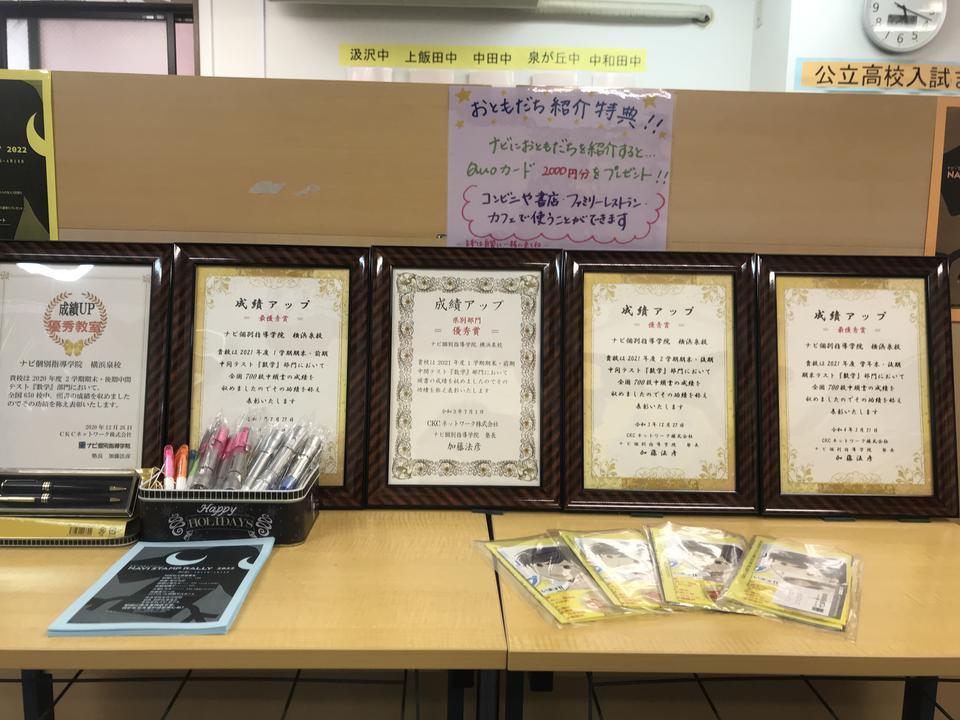 汲沢中 上飯田中 中田中 泉が丘中 中和田中
公立高校入試
おともだち紹介特典!!
ナビにおともだちを紹介すると…
Quoカード 2000円分をプレゼント!!
コンビニや書店・ファミリーレストラン・
カフェで使うことができます
2022
成績UP
優秀教室
ナビ個別指導学院 横浜泉校
貴校は2020年度2学期期末・後期中間
テスト『数学』部門において、
全国650校中、頭書の成績を収めました
のでその功績を称え表彰いたします。
2020年12月26日
CKCネットワーク株式会社
ナビ個別指導学院
塾長 加藤法彦
成績アップ
= 最優秀賞 =
ナビ個別指導学院 横浜泉校
貴校は2021年度1学期期末・前期
中間テスト『数学』部門において
全国700校中頭書の成績を
収めましたのでその功績を称え
表彰いたします
成績アップ
県別部門
= 優秀賞 =
ナビ個別指導学院 横浜泉校
貴校は2021年度1学期期末・前期
中間テスト『数学』部門において
頭書の成績を収めましたのでその
功績を称え表彰いたします
令和3年7月1日
CKCネットワーク株式会社
ナビ個別指導学院 塾長
加藤法彦
成績アップ
= 優秀賞 =
ナビ個別指導学院 横浜泉校
貴校は2021年度2学期期末・後期
中間テスト『数学』部門において
全国700校中頭書の成績を
収めましたのでその功績を称え
表彰いたします
令和3年12月27日
CKCネットワーク株式会社
ナビ個別指導学院 塾長
加藤法彦
成績アップ
= 最優秀賞 =
ナビ個別指導学院 横浜泉校
貴校は2021年度学年末・後期
期末テスト『数学』部門において
全国700校中頭書の成績を
収めましたのでその功績を称え
表彰いたします
CKCネットワーク株式会社
ナビ個別指導学院 塾長
加藤法彦
Happy
HOLIDAYS
NAVI STAMP RALLY 2022